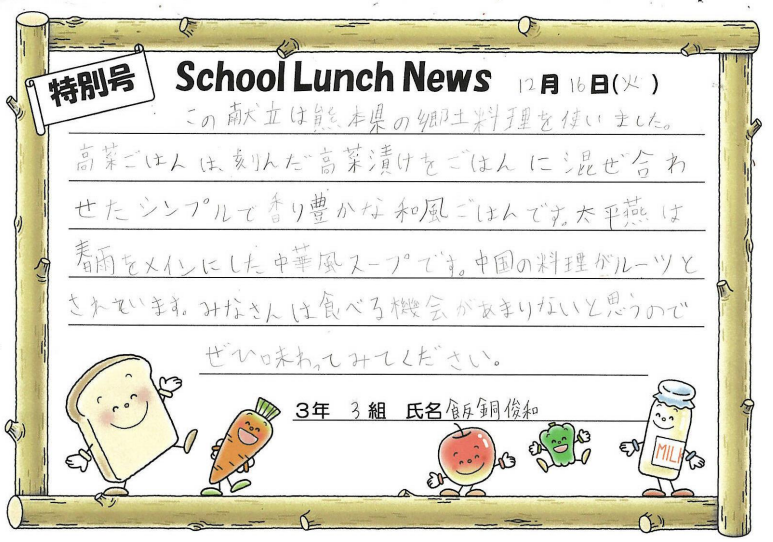 特別号
School Lunch News 12月16日(火)
この献立は熊本県の郷土料理を使いました。
高菜ごはんは、刻んだ高菜漬けをごはんに混ぜ合わ
せたシンプルで香り豊かな和風ごはんです。太平燕は
春雨をメインにした中華風スープです。中国の料理がルーツと
されています。みなさんは食べる機会があまりないと思うので
ぜひ味わってみてください。
3年 3組 氏名 飯銅俊和
MILK